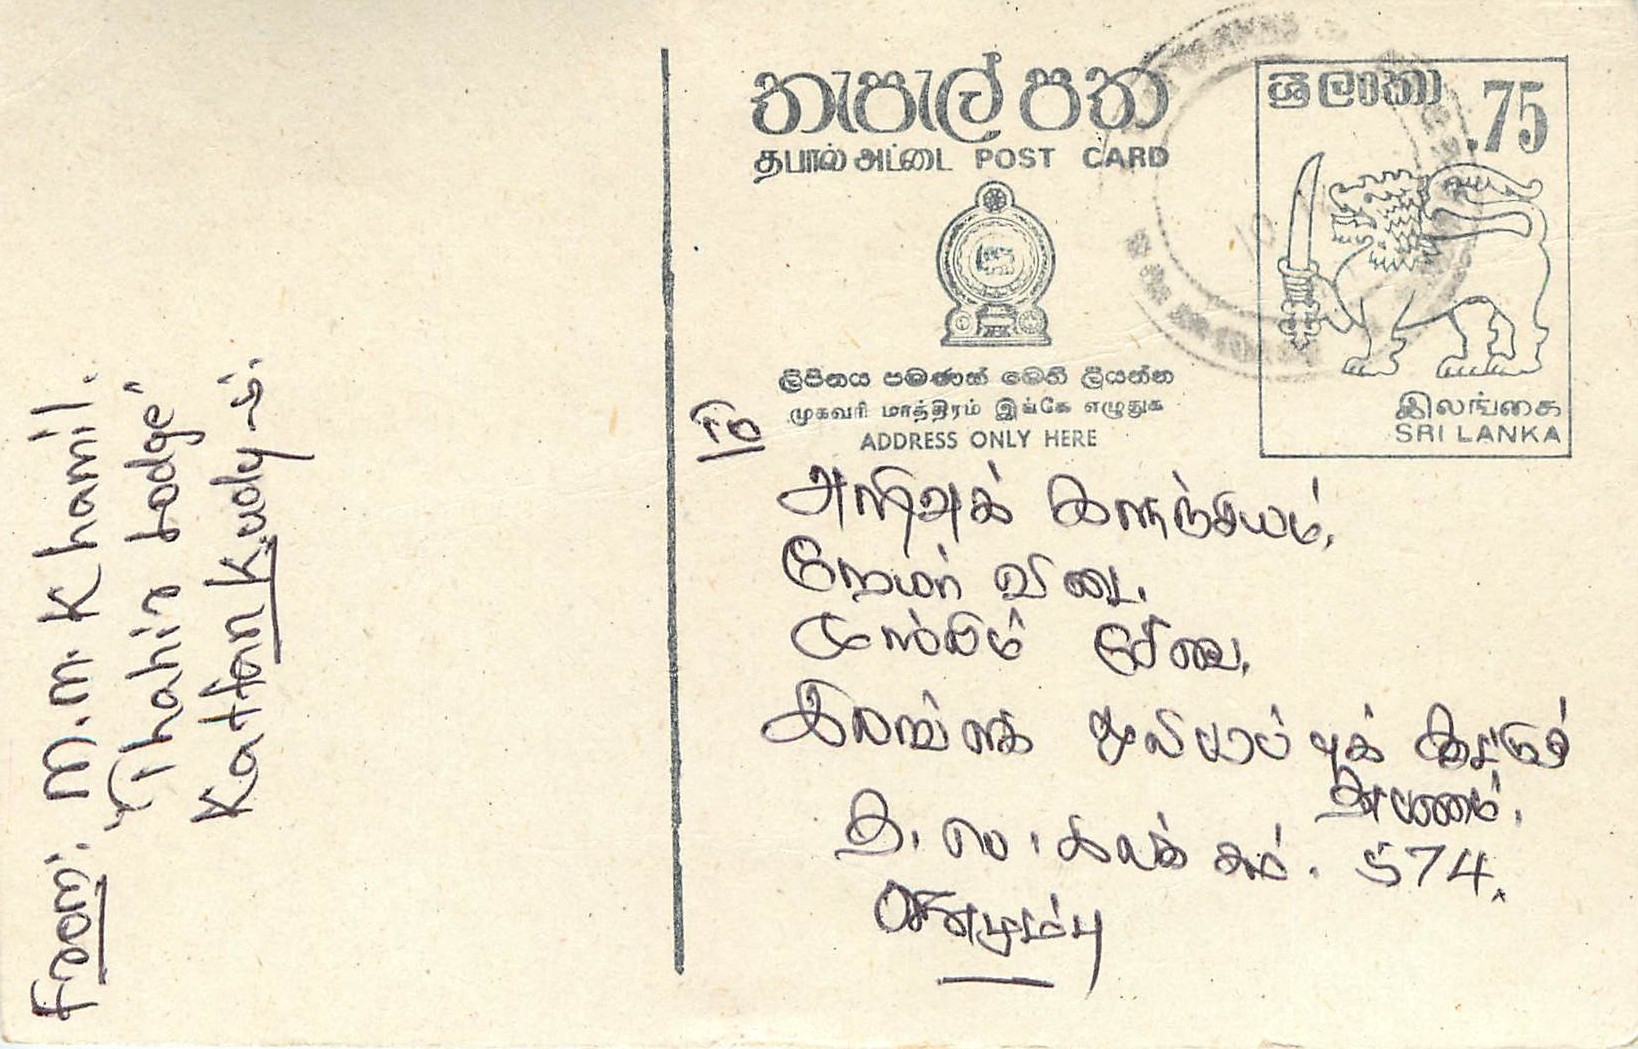 From:. M.M. Khamil.
"Thahir Lodge"
Kattan Kudy -5.
තැපැල් පත
தபால் அட்டை POST CARD
ලිපිනය පමණක් මෙහි ලියන්න
முகவரி மாத்திரம் இங்கே எழுதுக
ADDRESS ONLY HERE
ශ්‍රී ලංකා .75
இலங்கை
SRI LANKA
அறிவுக் களஞ்சியம்,
நேயர் விடை,
முஸ்லிம் சேவை,
இலங்கை ஒலிபரப்புக் கூட்டுத்
தாபனம்.
த. பெ. இலக்கம். 574,
கொழும்பு